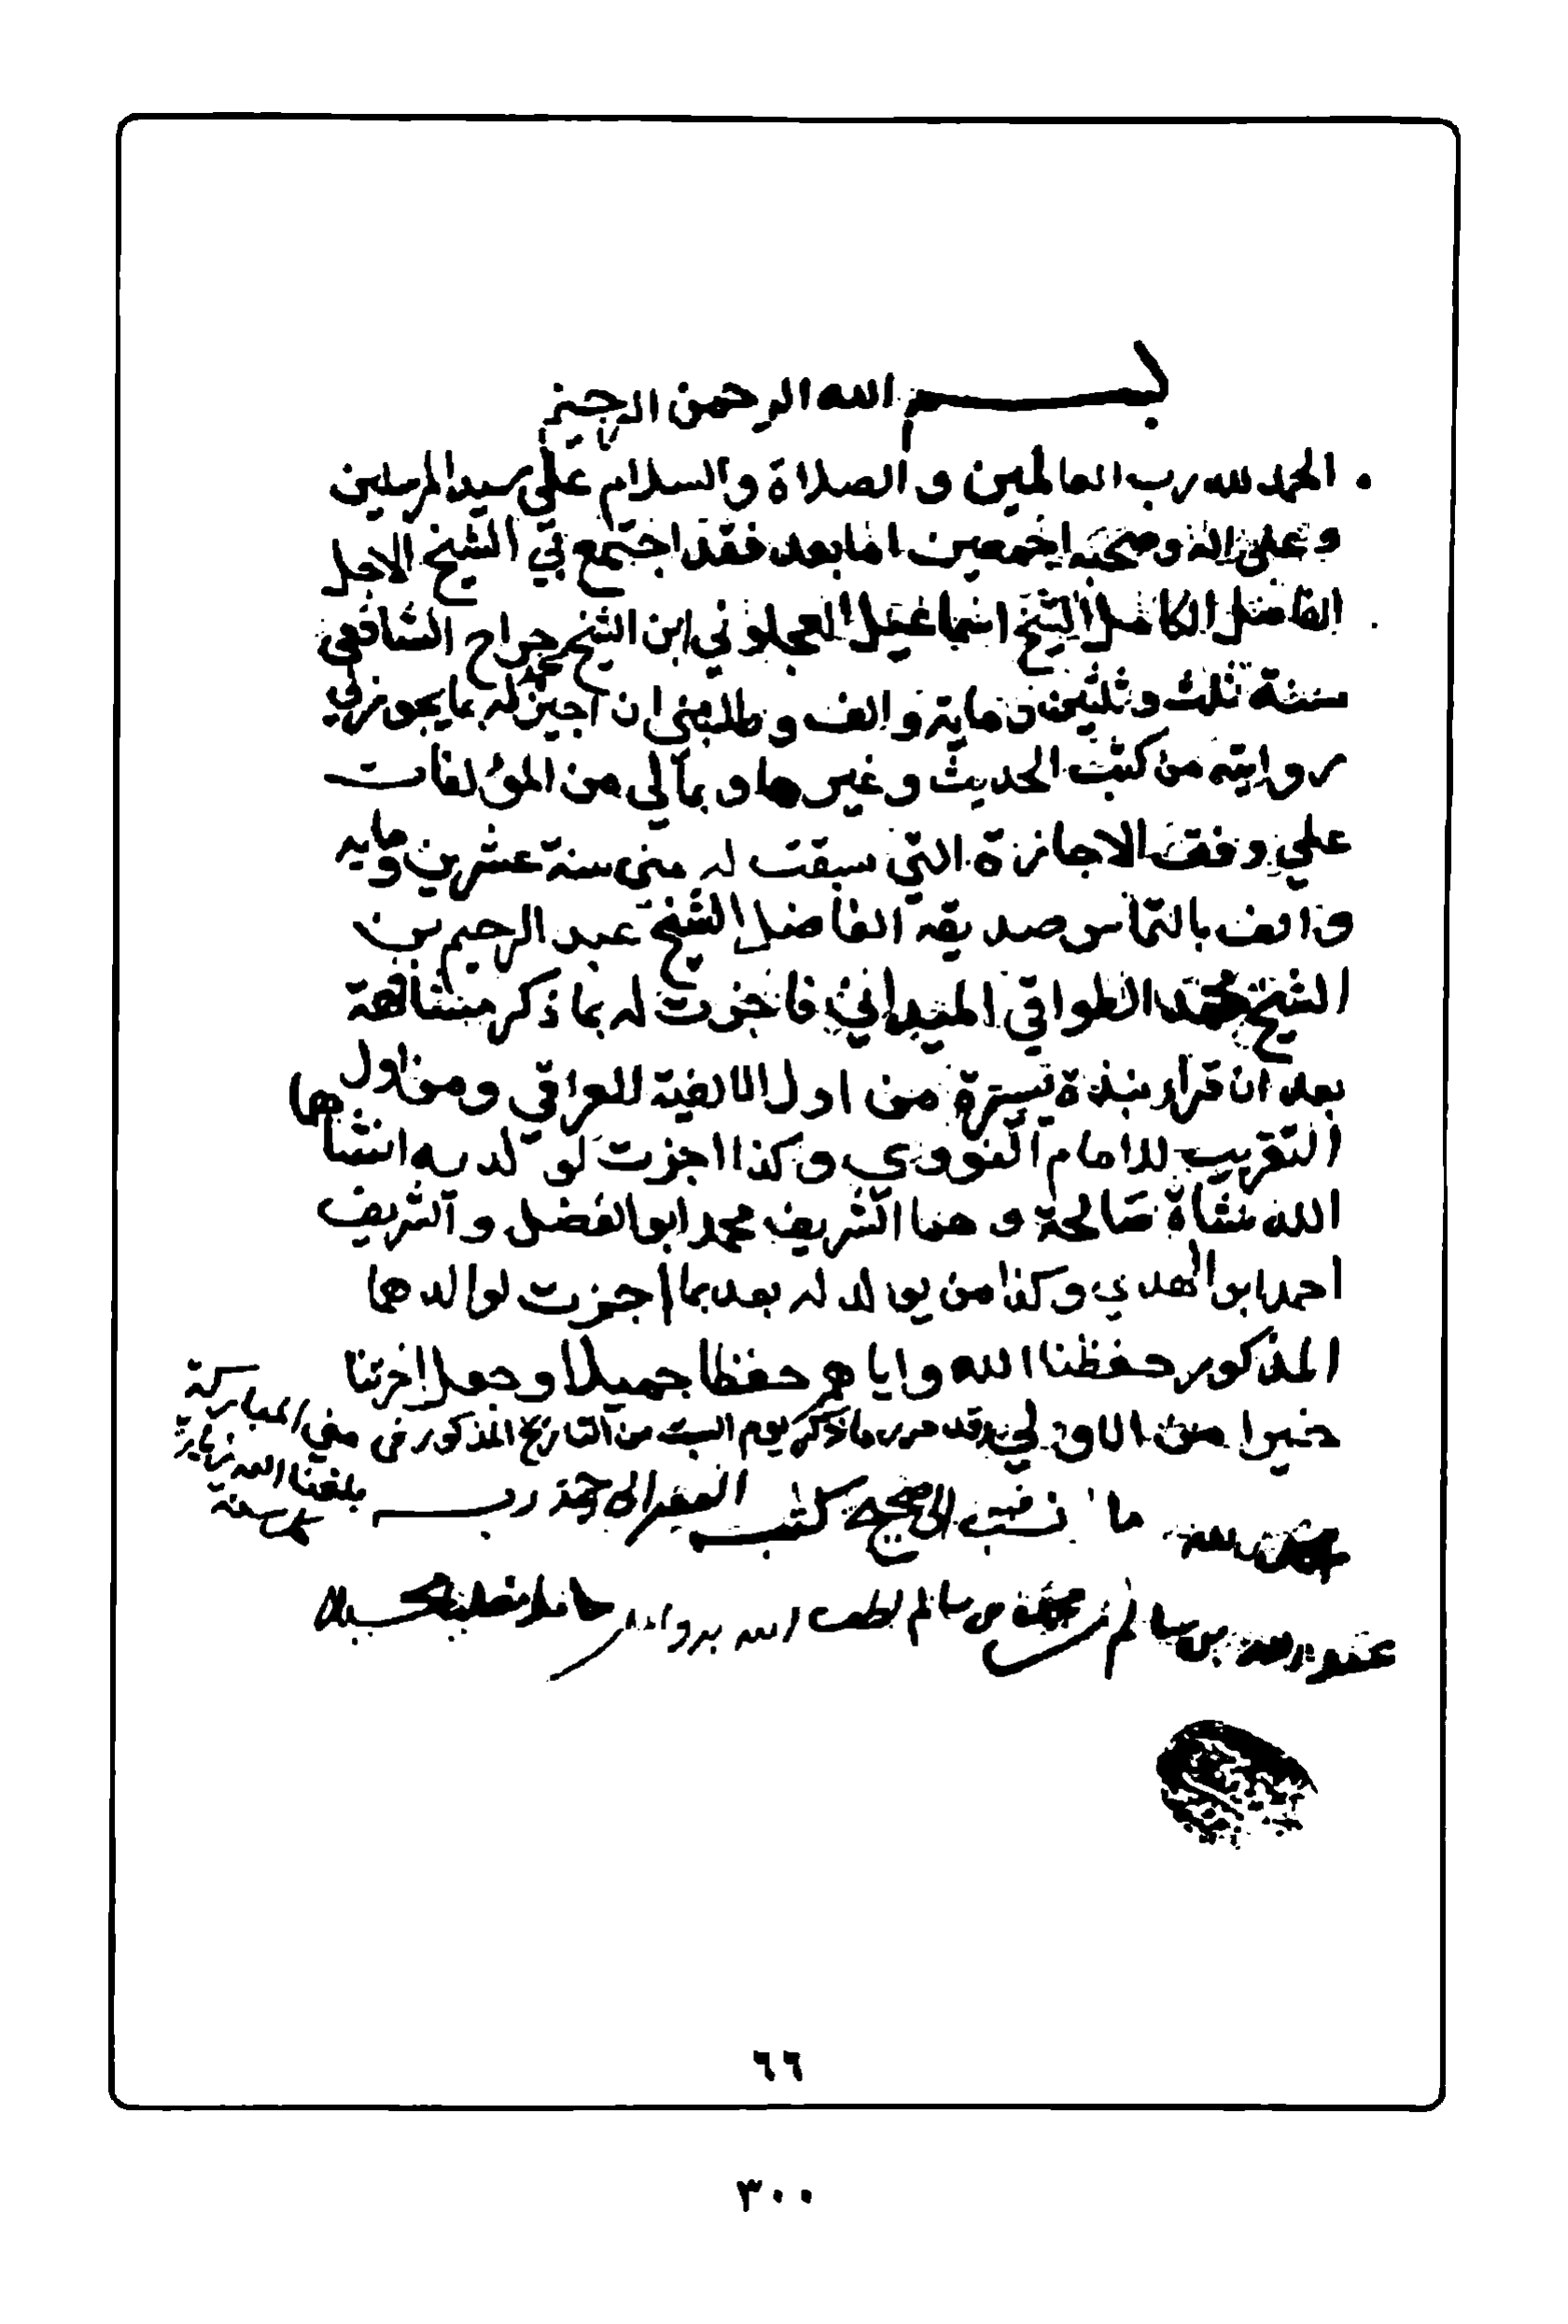 بسم الله الرحمن الرحيم
الحمد لله رب العالمين والصلاة والسلام على سيد المرسلين
وعلى اله وصحبه اجمعين اما بعد فقد اجتمع بي الشيخ الاجل
الفاضل الكامل الشيخ اسماعيل العجلوني ابن الشيخ محمد جراح الشافعي
سنة ثلث وثلثين ومايه والف وطلب مني ان اجيز له بما يجوز لي
روايته من كتب الحديث وغيرها وبمالي من المؤلفات
علي وفق الاجازة التي سبقت له مني سنة عشرين ومايه
والف بالتماس صديقه الفاضل الشيخ عبد الرحيم بن
الشيخ محمد الطواقي الميداني فاجزت له بما ذكر مشافهة
بعد ان قرا نبذة يسيرة من اول الالفية للعراقي ومن اول
التقريب للامام النووي وكذا اجزت لولديه انشاهما
الله نشاة صالحة وهما الشريف محمد ابو الفضل والشريف
احمد ابو الهدي وكذا من يولد له بعد بما اجزت لوالدهما
المذكور حفظنا الله واياهم حفظا جميلا وجعل اخرتنا
خيرا من الاولي وقد حرر ما ذكر يوم السبت من التاريخ المذكور في مني المباركة
بلغنا الله زيارة
كل سنة
الحمد لله ما نسب الي صحيح كتب الفقير الي رحمة ربه
عبد الله بن سالم بن محمد بن سالم لطف الله به والله
٦٦
٣٠٠